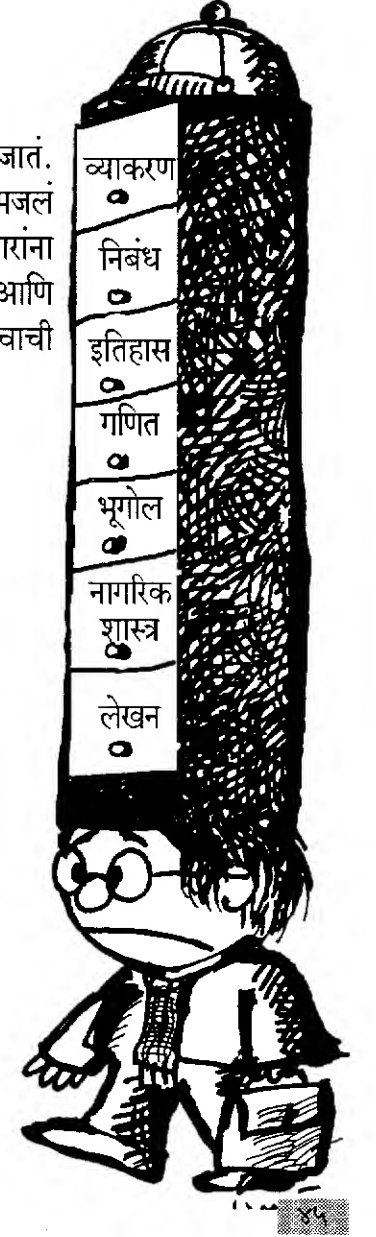 जातं.
मजलं
गरांना
आणि
वाची
व्याकरण
निबंध
इतिहास
गणित
भूगोल
नागरिक
शास्त्र
लेखन
४५